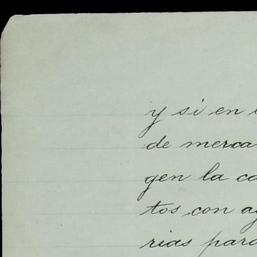 y si en
de merca
gen la co
tos con ag
rias para